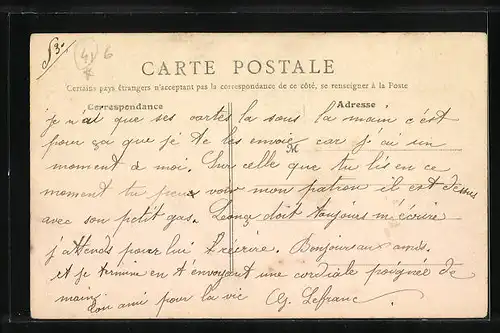 53
41 6
CARTE POSTALE
Certains pays étrangers n'acceptant pas la correspondance de ce côté, se renseigner à la Poste
Correspondance
Adresse
je n'ai que ses cartes la sous la main c'est
pour ça que je te les envoie car j'ai un
M
moment de moi. Sur celle que tu lis en ce
moment tu peux voir mon patron il est dessus
avec son petit gas. Leonce doit toujours m'écrire
j'attends pour lui récrire. Bonjour aux amis.
et je termine en t'envoyant une cordiale poignée de
main
ton ami pour la vie G. Lefranc